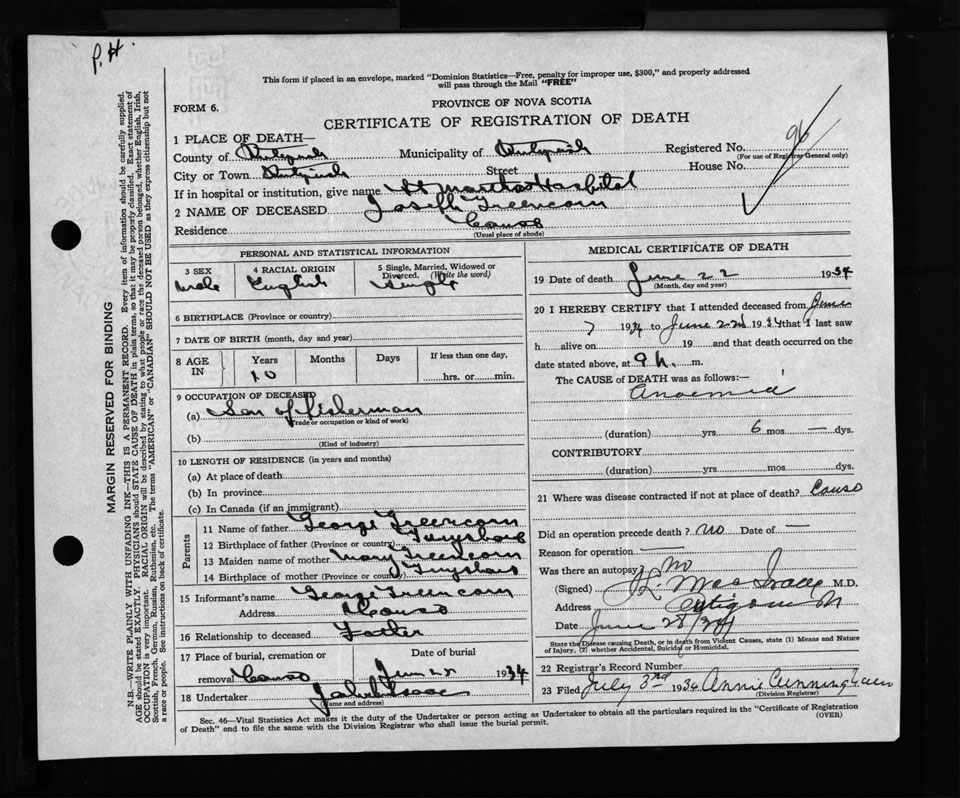 P. H.
This form if placed in an envelope, marked "Dominion Statistics—Free, penalty for improper use, $300," and properly addressed
will pass through the Mail "FREE"
FORM 6.
PROVINCE OF NOVA SCOTIA
CERTIFICATE OF REGISTRATION OF DEATH
96
1 PLACE OF DEATH—
County of Municipality of Registered No.
(For use of Registrar General only)
City or Town Street House No.
If in hospital or institution, give name St Marthas Hospital
2 NAME OF DECEASED Joseph Greencorn
Residence Canso
(Usual place of abode)
PERSONAL AND STATISTICAL INFORMATION
3 SEX 4 RACIAL ORIGIN 5 Single, Married, Widowed or
Divorced. (Write the word)
Male English Single
6 BIRTHPLACE (Province or country)
7 DATE OF BIRTH (month, day and year)
8 AGE IN Years Months Days If less than one day,
10 hrs. or min.
9 OCCUPATION OF DECEASED
(a) Son of fisherman
(Trade or occupation or kind of work)
(b)
(Kind of industry)
10 LENGTH OF RESIDENCE (in years and months)
(a) At place of death
(b) In province
(c) In Canada (if an immigrant)
Parents
11 Name of father George Greencorn
12 Birthplace of father (Province or country) Guysboro
13 Maiden name of mother Mary Greencorn
14 Birthplace of mother (Province or country) Guysboro
15 Informant's name George Greencorn
Address Canso
16 Relationship to deceased Father
17 Place of burial, cremation or Date of burial
removal Canso June 25 1934
18 Undertaker
(Name and address)
MEDICAL CERTIFICATE OF DEATH
19 Date of death June 22 1934
(Month, day and year)
20 I HEREBY CERTIFY that I attended deceased from June
7 1934 to June 22d 1934 that I last saw
h alive on 19 and that death occurred on the
date stated above, at 9 m.
The CAUSE OF DEATH was as follows:—
Anaemia
(duration) yrs 6 mos — dys.
CONTRIBUTORY
(duration) yrs mos dys.
21 Where was disease contracted if not at place of death? Canso
Did an operation precede death? No Date of —
Reason for operation —
Was there an autopsy? No
(Signed) M.D.
Address
Date June 28/34
State the Disease causing Death, or in death from Violent Causes, state (1) Means and Nature
of Injury, (2) whether Accidental, Suicidal or Homicidal.
22 Registrar's Record Number
23 Filed July 3rd 1934 Annie Cunningham
(Division Registrar)
Sec. 46—Vital Statistics Act makes it the duty of the Undertaker or person acting as Undertaker to obtain all the particulars required in the "Certificate of Registration
of Death" and to file the same with the Division Registrar who shall issue the burial permit. (OVER)
MARGIN RESERVED FOR BINDING
N.B.—WRITE PLAINLY WITH UNFADING INK—THIS IS A PERMANENT RECORD. Every item of information should be carefully supplied.
AGE should be stated EXACTLY. PHYSICIANS should STATE CAUSE OF DEATH in plain terms, so that it may be properly classified. Exact statement of
OCCUPATION is very important. RACIAL ORIGIN will be described by stating to what people or race the deceased person belonged, whether English, Irish,
Scottish, French, German, Russian, Ruthenian, etc. The terms "AMERICAN" or "CANADIAN" SHOULD NOT BE USED as they express citizenship but not
a race or people. See instructions on back of certificate.